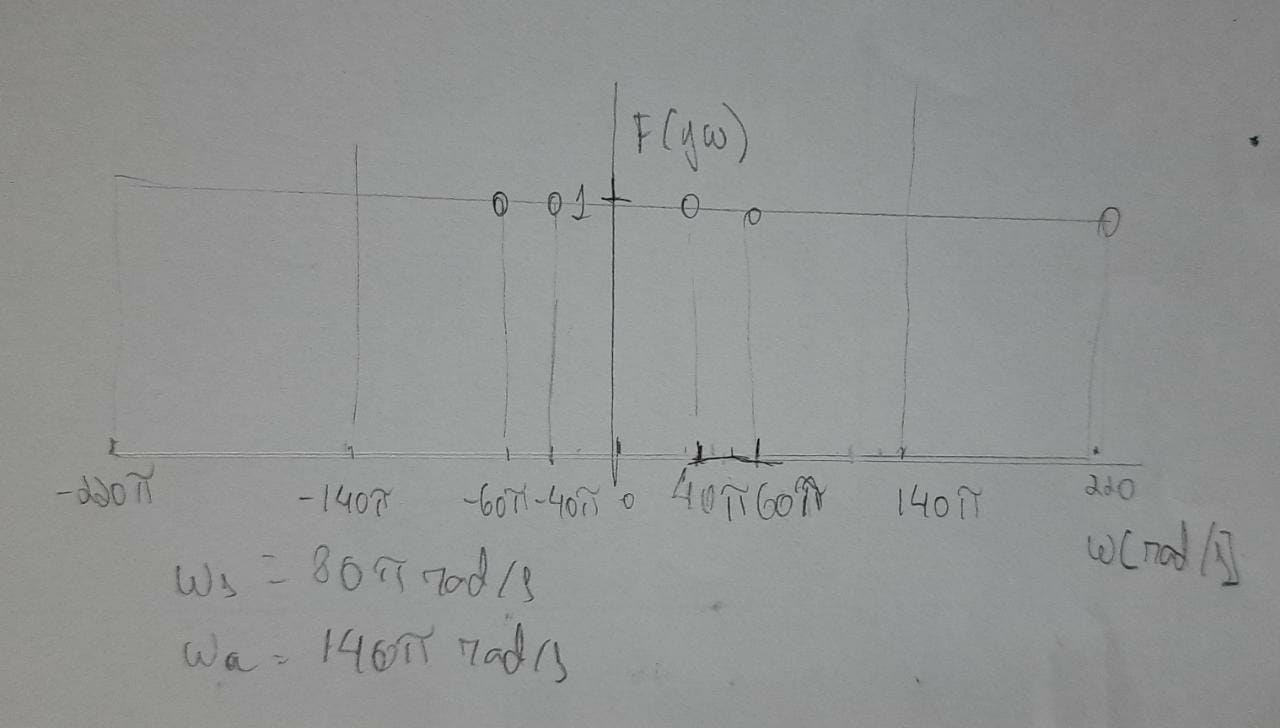 F(yω)
1
-220π -140π -60π -40π 0 40π 60π 140π 220
ω[rad/s]
ωs = 80π rad/s
ωa = 140π rad/s